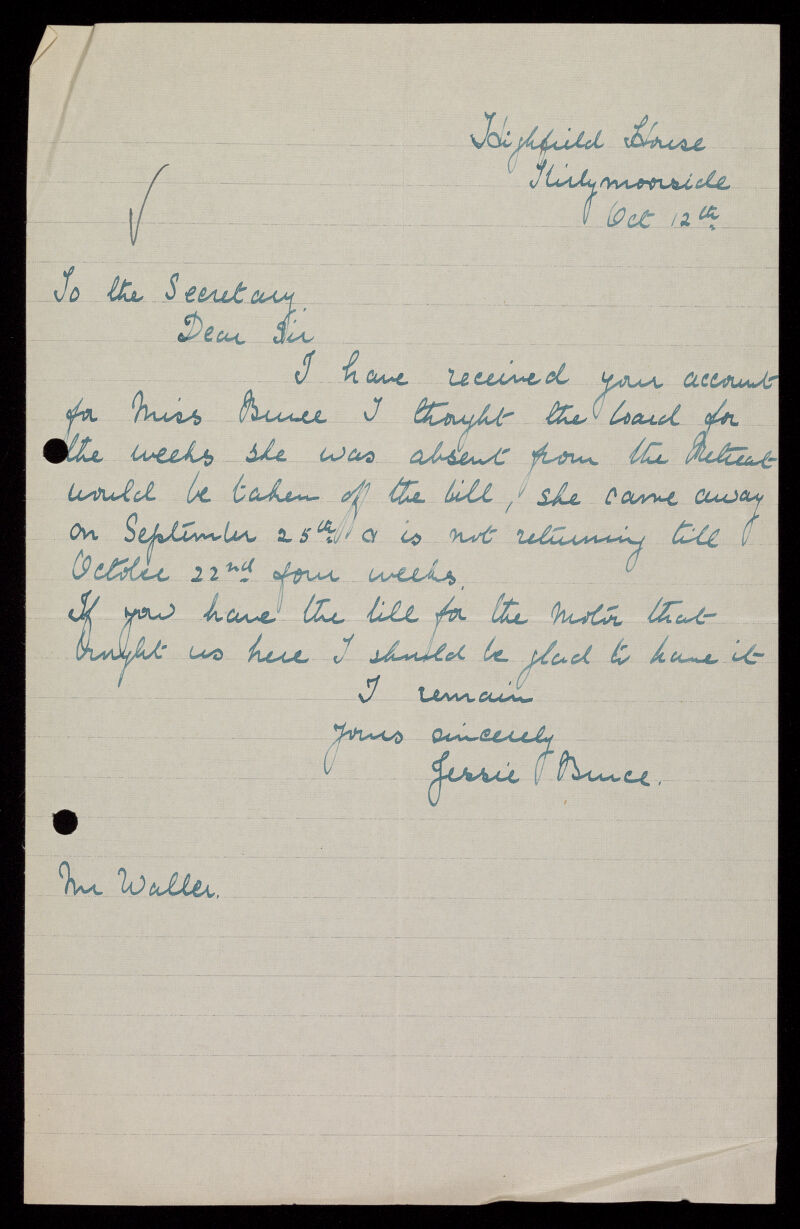 Highfield House
Kirbymoorside
Oct 12th
To the Secretary
Dear Sir
I have received your account
for Miss Bruce I thought the board for
the weeks she was absent from the Retreat
would be taken of the bill, she came away
on September 25th & is not returning till
October 22nd four weeks.
If you have the bill for the motor that
brought us here I should be glad to have it
I remain
yours sincerely
Jessie Bruce.
Mr Waller.